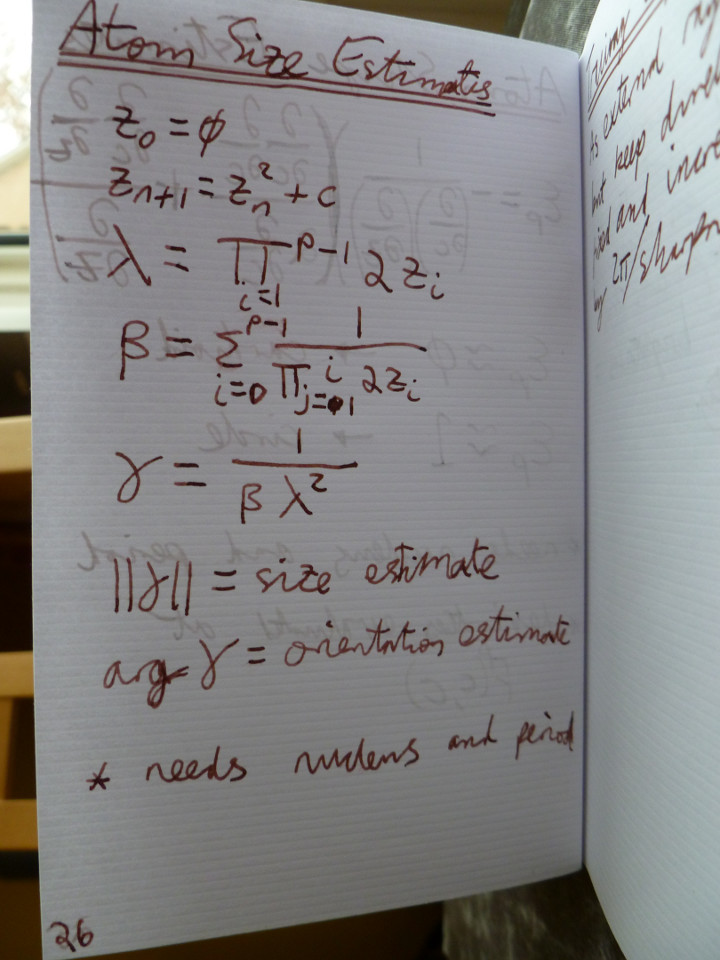 Atom Size Estimates
z₀ = ϕ
zₙ₊₁ = zₙ² + c
λ = ∏_{i=1}^{p-1} 2 z_i
β = Σ_{i=0}^{p-1} 1 / ∏_{j=1}^{i} 2 z_i
γ = 1 / β λ²
||γ|| = size estimate
arg γ = orientation estimate
* needs nucleus and period
26
As external
but keep
and
by 2π/